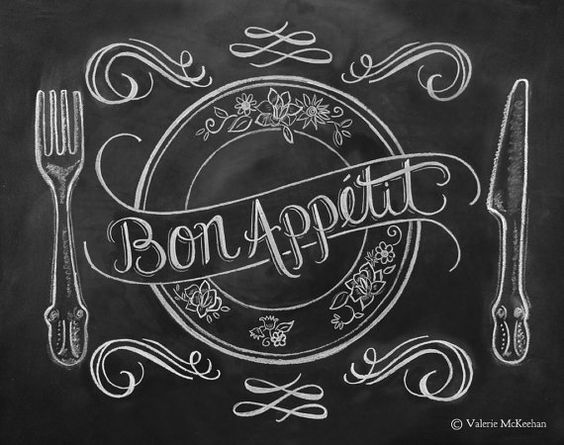 Bon Appétit
© Valerie McKeehan